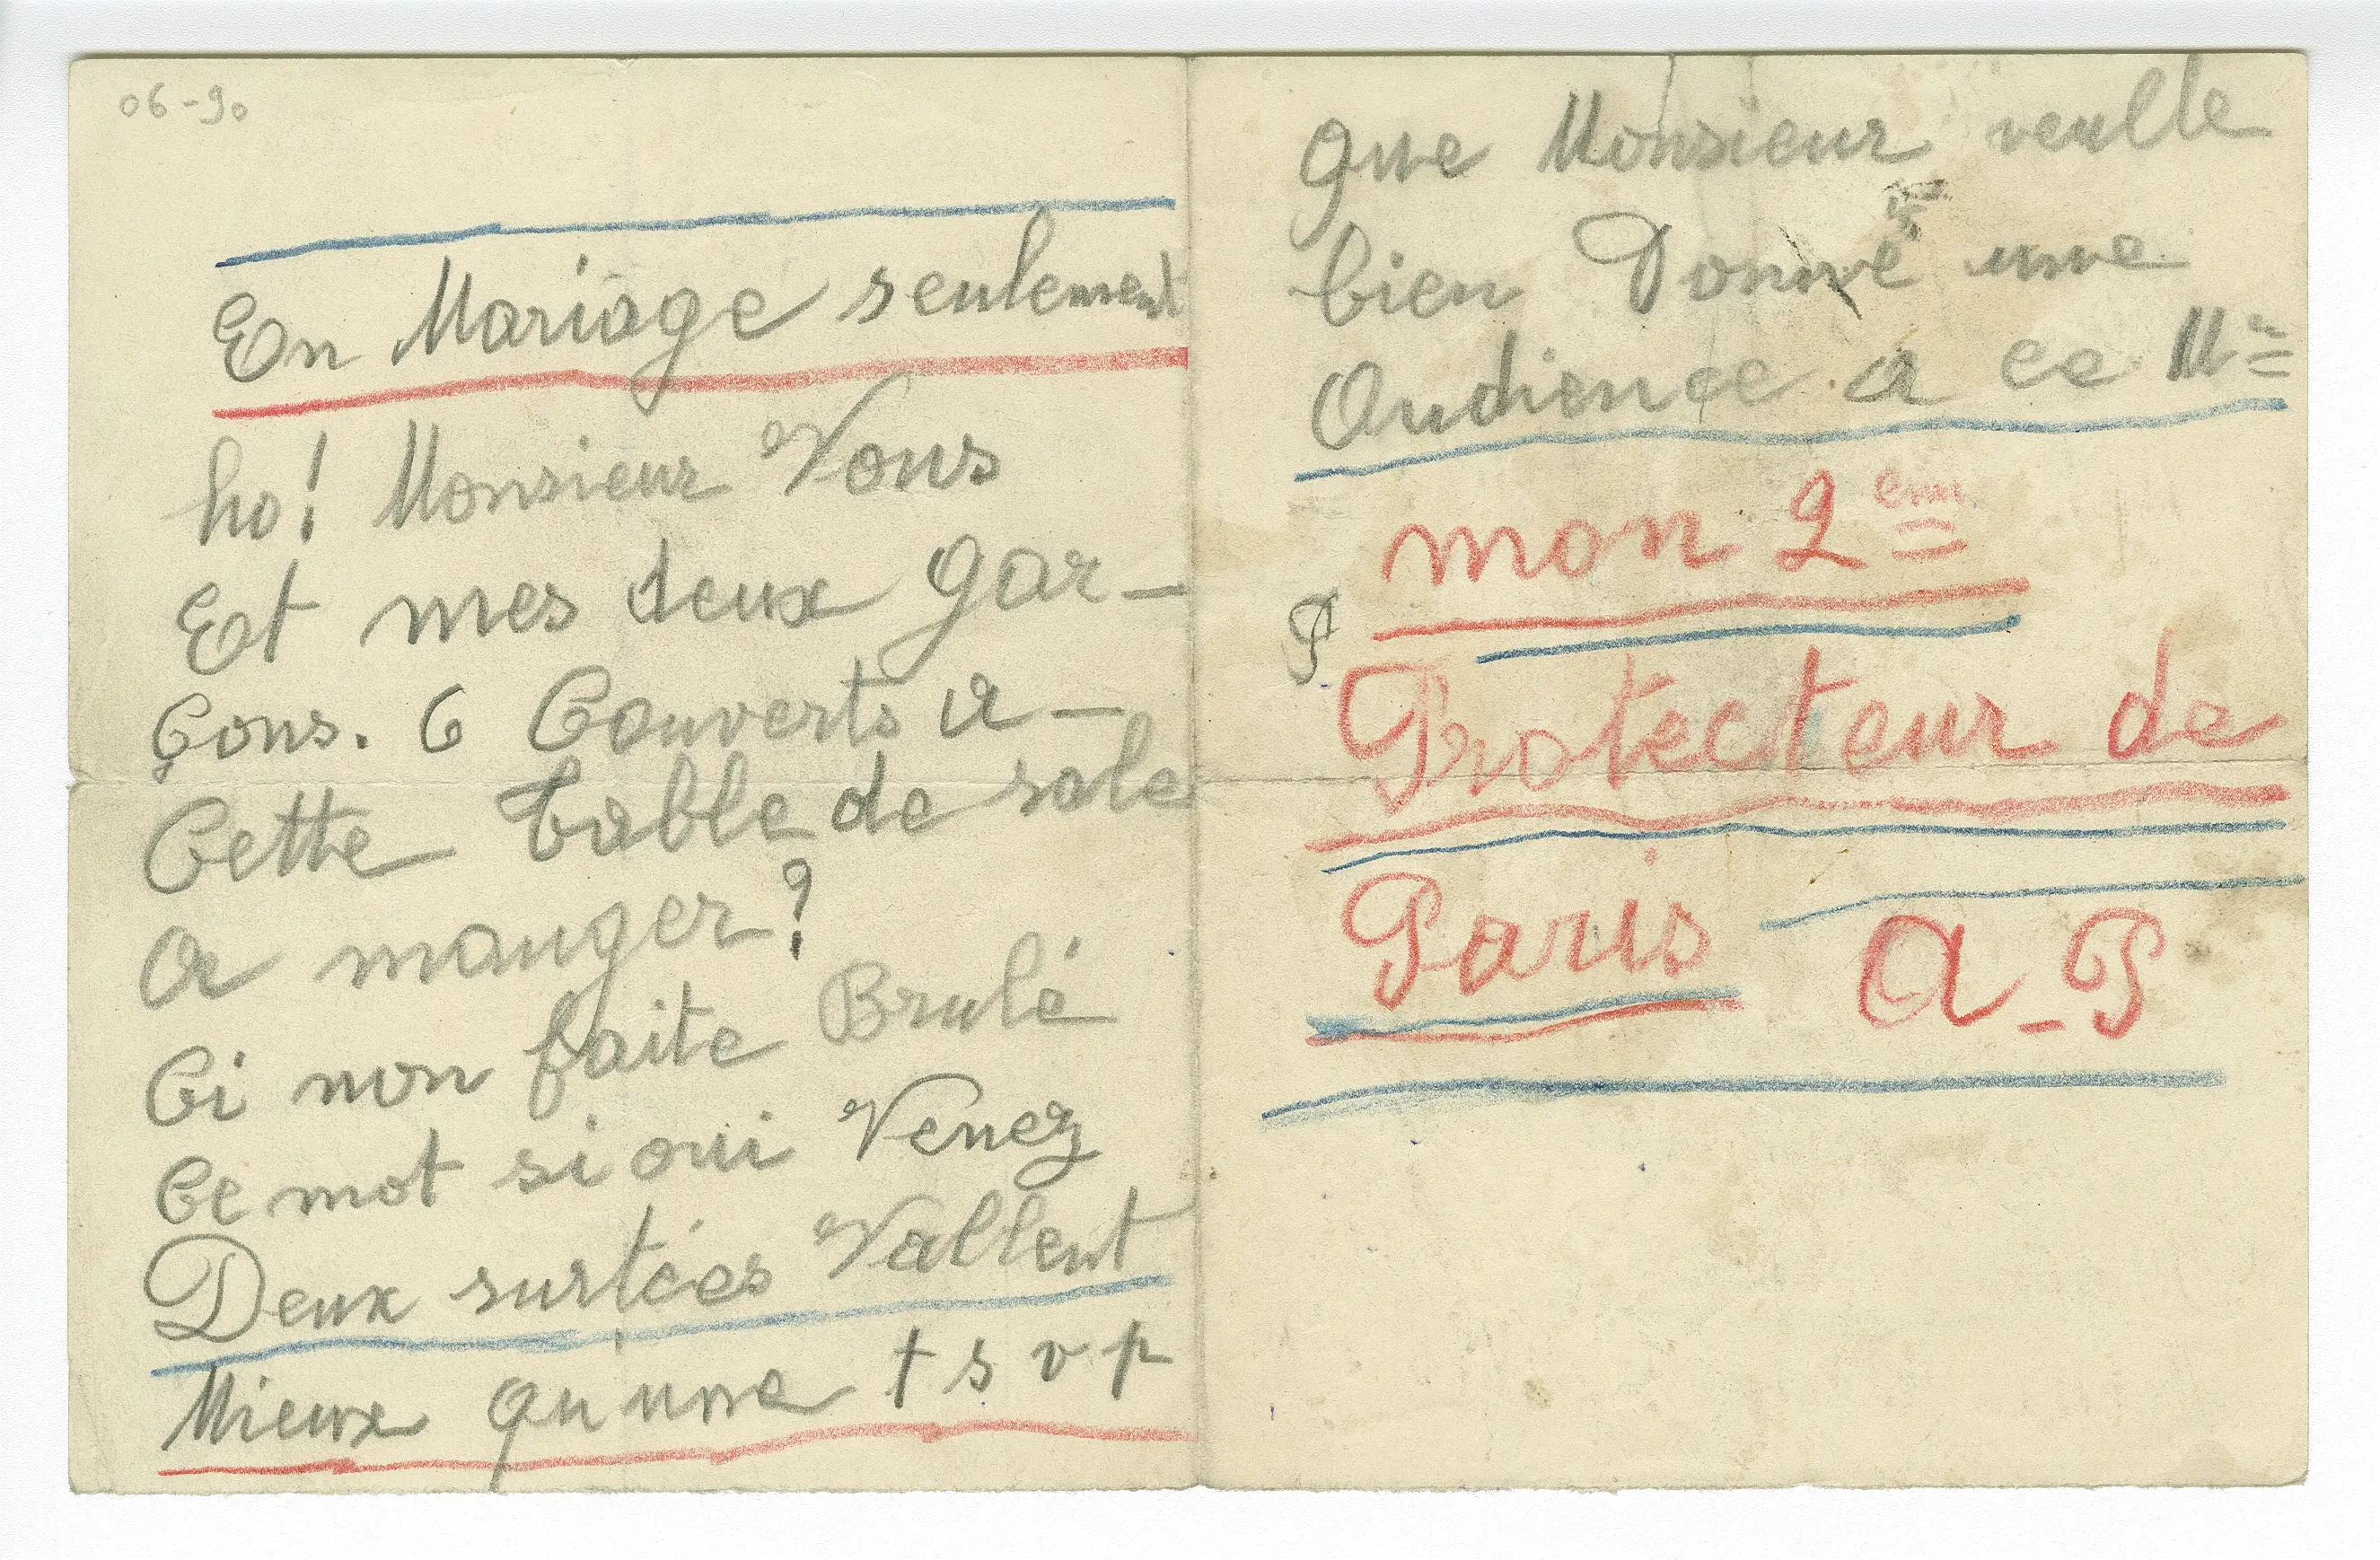 06-90
En Mariage seulement
ho! Monsieur Vous
Et mes deux gar-
çons. 6 Couverts a-
Cette table de sale
a manger?
Ci non faite Brulé
Ce mot si oui Venez
Deux surtées Vallent
Mieux qu'une t s v p
que Monsieur veulle
bien Donné une
Audience a ce Mr
mon 2em
P
Protecteur de
Paris A-P